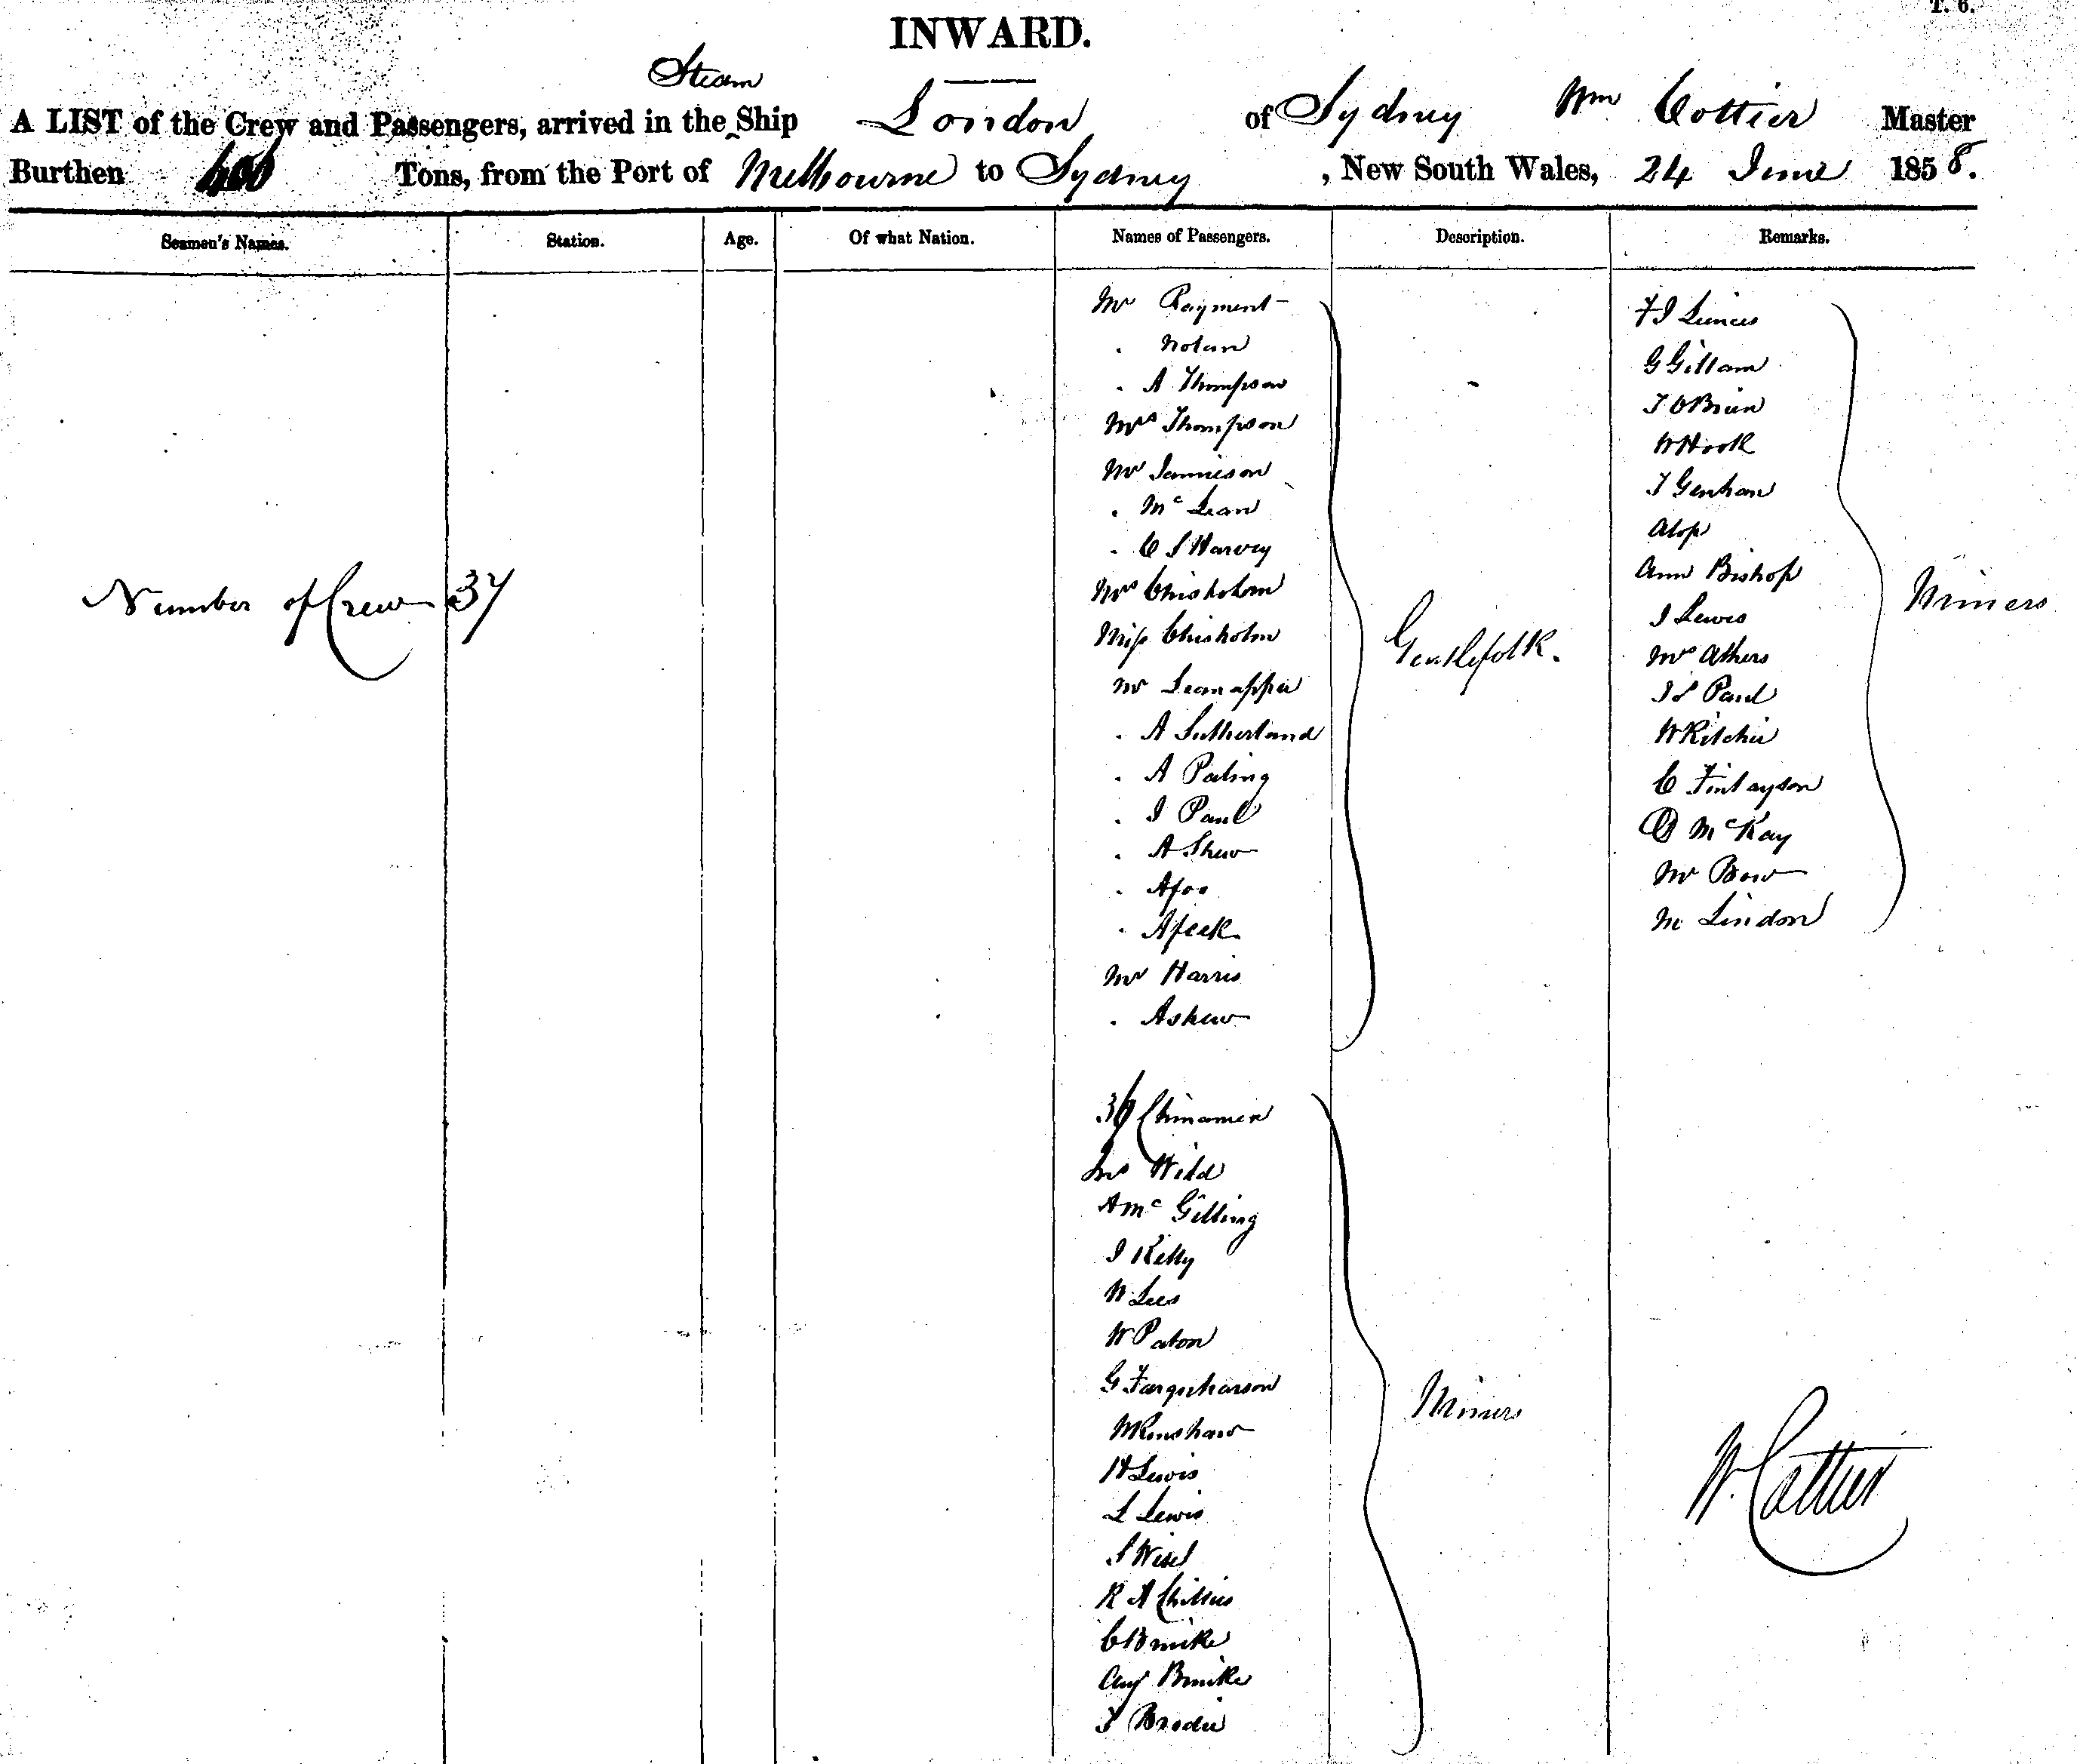 T. 6.
INWARD.
Steam
A LIST of the Crew and Passengers, arrived in the Ship London of Sydney Wm Cottier Master
Burthen Tons, from the Port of Melbourne to Sydney, New South Wales, 24 June 1858.
Seamen's Names. Station. Age. Of what Nation. Names of Passengers. Description. Remarks.
Number of Crew 37
Mr Rayment
. Nolan
. A Thompson
Mrs Thompson
Mr Jamieson
. McLean
. C S Harvey
Mrs Chisholm
Miss Chisholm
Mr
. A Sutherland
. A Paling
. J Paul
. A Shew
. Afoo
. Afeek
Mr Harris
. Askew
Gentlefolk.
Chinamen
Wild
A Mc Gilling
J Kelly
W Lees
W Paton
G Farquharson
M Renshaw
H Lewis
L Lewis
S West
R A Chillies
C Bmike
Aug Bmike
J Brodie
Miners
F J
G Gillam
J O'Brien
W Hook
J Genhan
Alop
Ann Bishop
J Lewis
Mrs Athers
J S Paul
W Ritchie
C Finlayson
D McKay
Mr Bow
M Lindon
Miners
W. Cottier